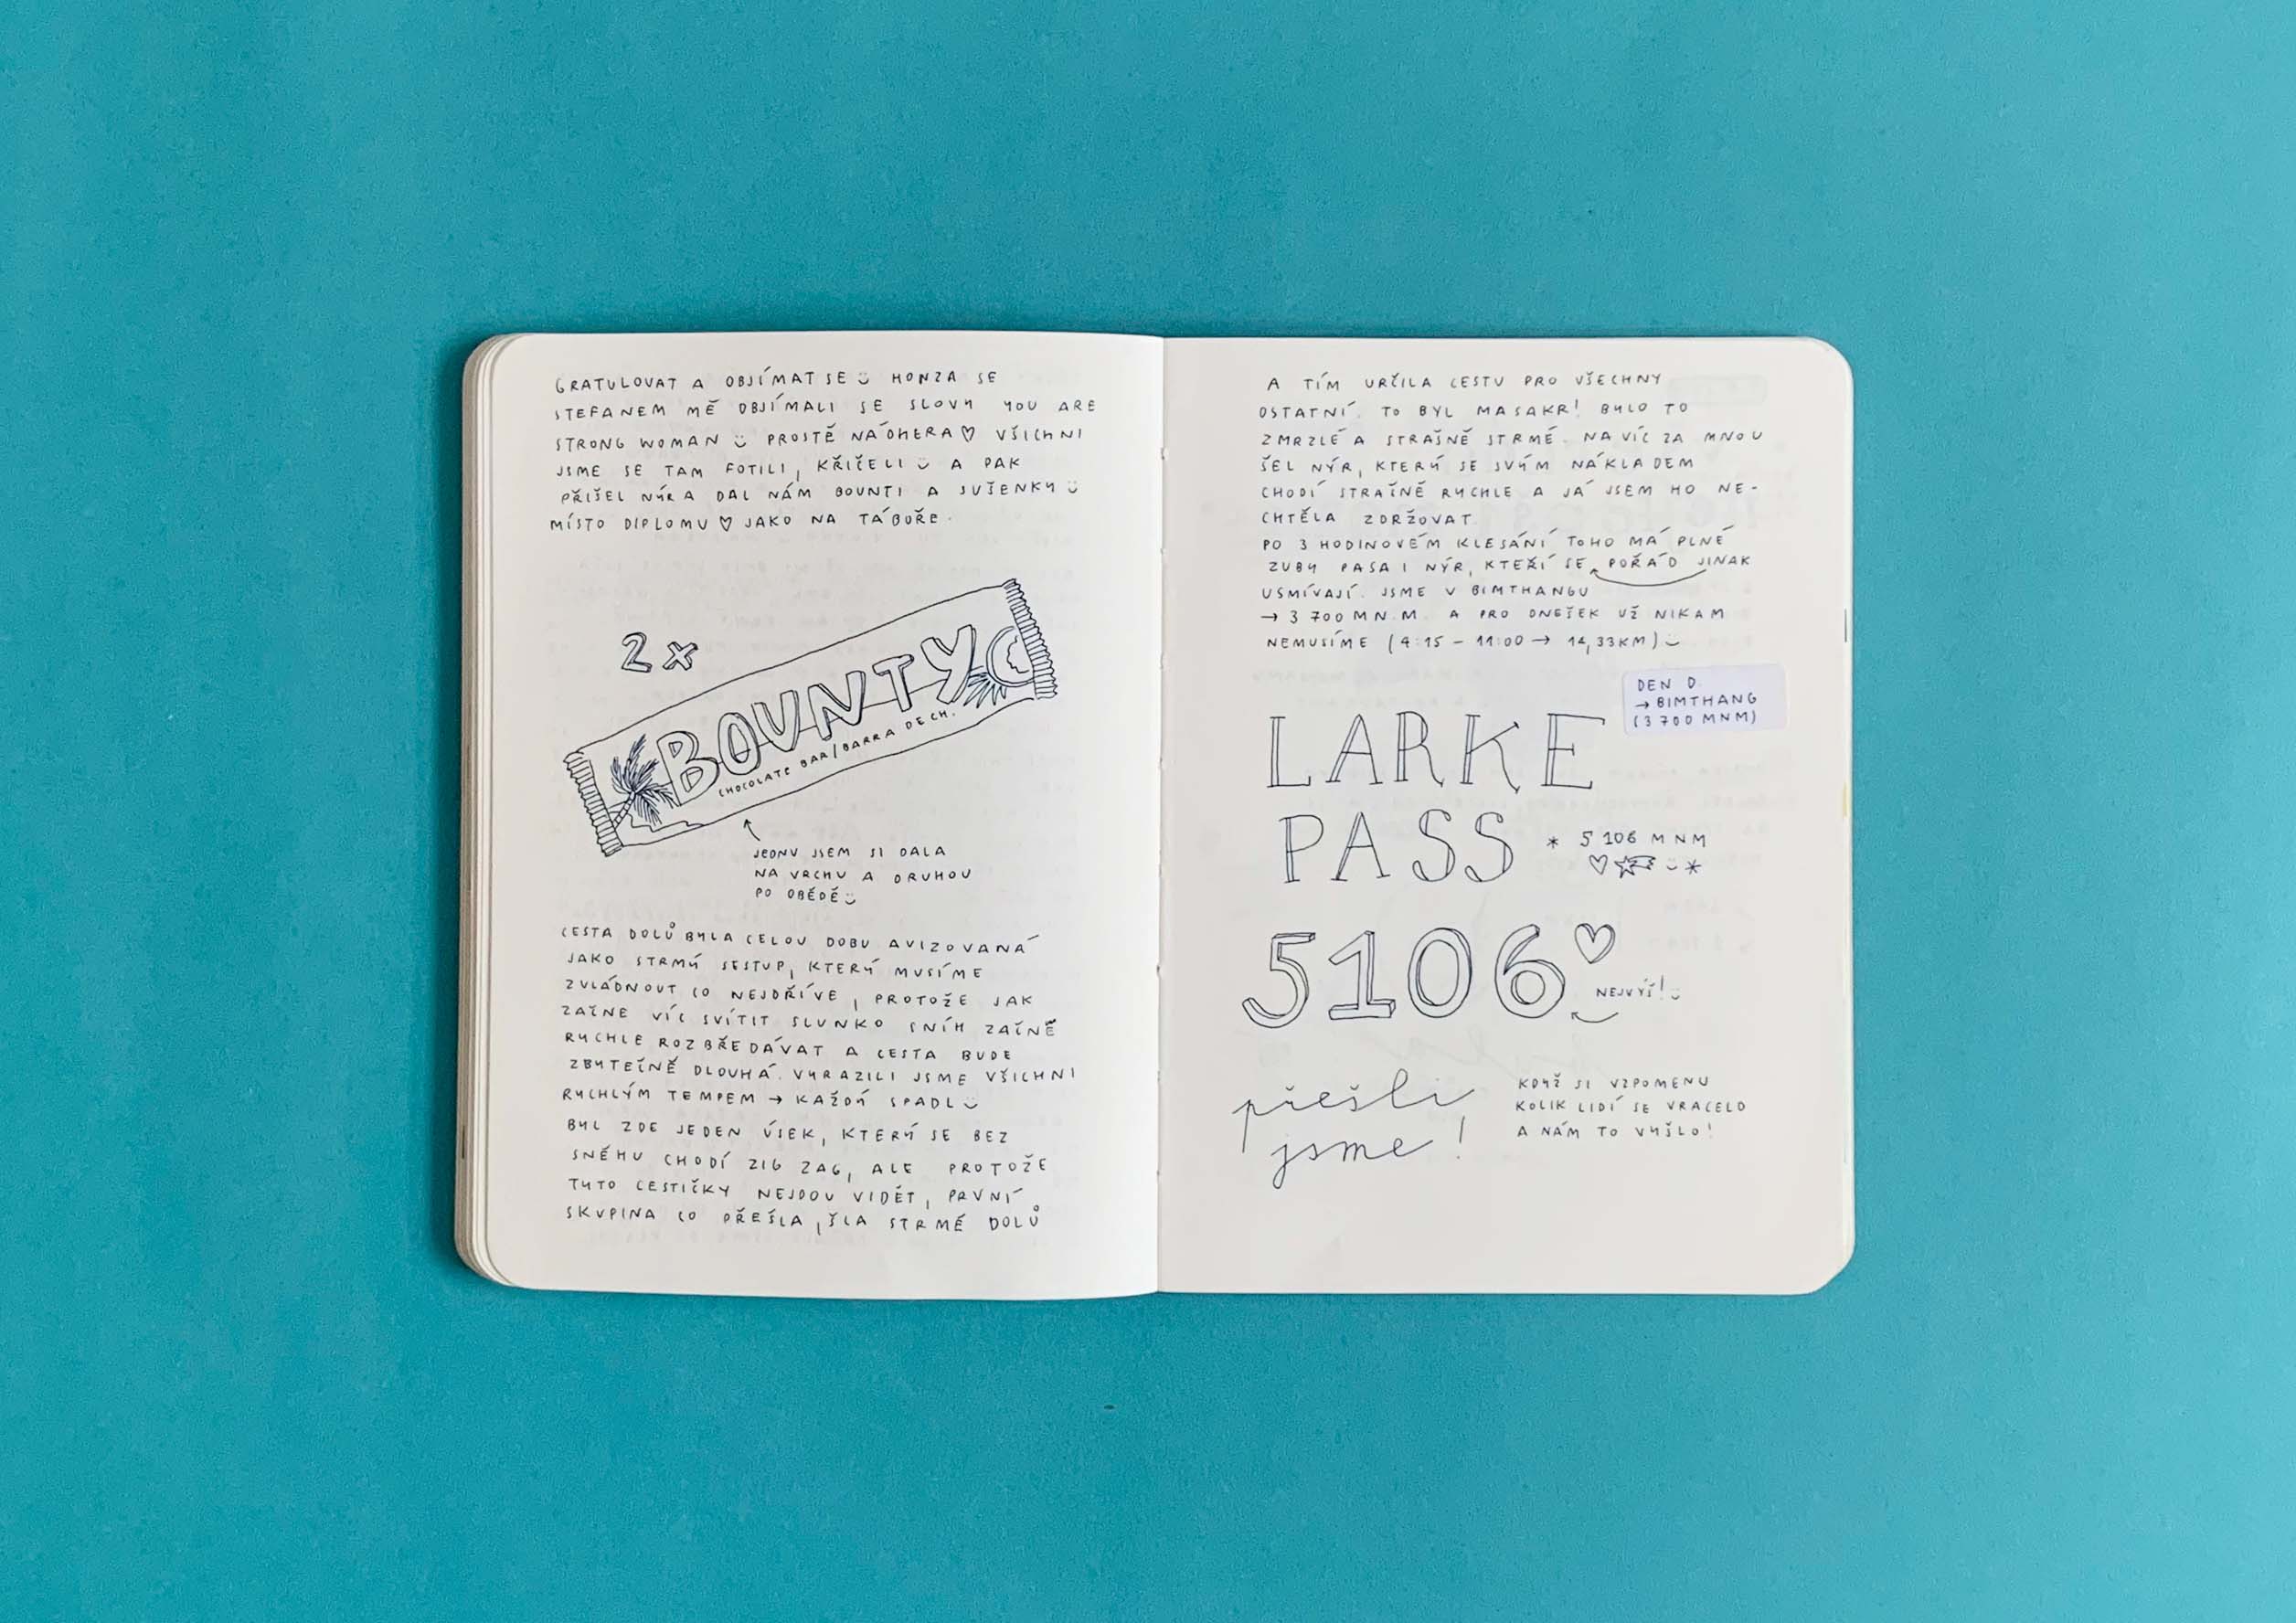 GRATULOVAT A OBJÍMAT SE HONZA SE
STEFANEM MĚ OBJÍMALI SE SLOVY YOU ARE
STRONG WOMAN PROSTĚ NÁDHERA VŠICHNI
JSME SE TAM FOTILI, KŘIČELI A PAK
PŘIŠEL NÝR A DAL NÁM BOUNTI A SUŠENKY
MÍSTO DIPLOMU JAKO NA TÁBOŘE.
2x
BOUNTY
CHOCOLATE BAR/BARRA DE CH.
JEDNU JSEM SI DALA
NA VRCHU A DRUHOU
PO OBĚDĚ
CESTA DOLŮ BYLA CELOU DOBU AVIZOVANÁ
JAKO STRMÝ SESTUP, KTERÝ MUSÍME
ZVLÁDNOUT CO NEJDŘÍVE, PROTOŽE JAK
ZAČNE VÍC SVÍTIT SLUNKO SNÍH ZAČNĚ
RYCHLE ROZBŘEDÁVAT A CESTA BUDE
ZBYTEČNĚ DLOUHÁ. VYRAZILI JSME VŠICHNI
RYCHLÝM TEMPEM → KAŽDÝ SPADL
BYL ZDE JEDEN ÚSEK, KTERÝ SE BEZ
SNĚHU CHODÍ ZIG ZAG, ALE PROTOŽE
TYTO CESTIČKY NEJDOU VIDĚT, PRVNÍ
SKUPINA CO PŘEŠLA, ŠLA STRMĚ DOLŮ
A TÍM URČILA CESTU PRO VŠECHNY
OSTATNÍ. TO BYL MASAKR! BYLO TO
ZMRZLÉ A STRAŠNĚ STRMÉ. NAVÍC ZA MNOU
ŠEL NÝR, KTERÝ SE SVÝM NÁKLADEM
CHODÍ STRAŠNĚ RYCHLE A JÁ JSEM HO NE-
CHTĚLA ZDRŽOVAT.
PO 3 HODINOVÉM KLESÁNÍ TOHO MÁ PLNÉ
ZUBY PASA I NÝR, KTEŘÍ SE POŘÁD JINAK
USMÍVAJÍ. JSME V BIMTHANGU
→ 3 700 M N.M. A PRO DNEŠEK UŽ NIKAM
NEMUSÍME (4:15 – 11:00 → 14,33KM)
DEN D.
→ BIMTHANG
(3 700 MNM)
LARKE
PASS
* 5 106 M N M
*
5106
NEJVÝŠ!
přešli
jsme!
KDYŽ SI VZPOMENU
KOLIK LIDÍ SE VRACELO
A NÁM TO VYŠLO!